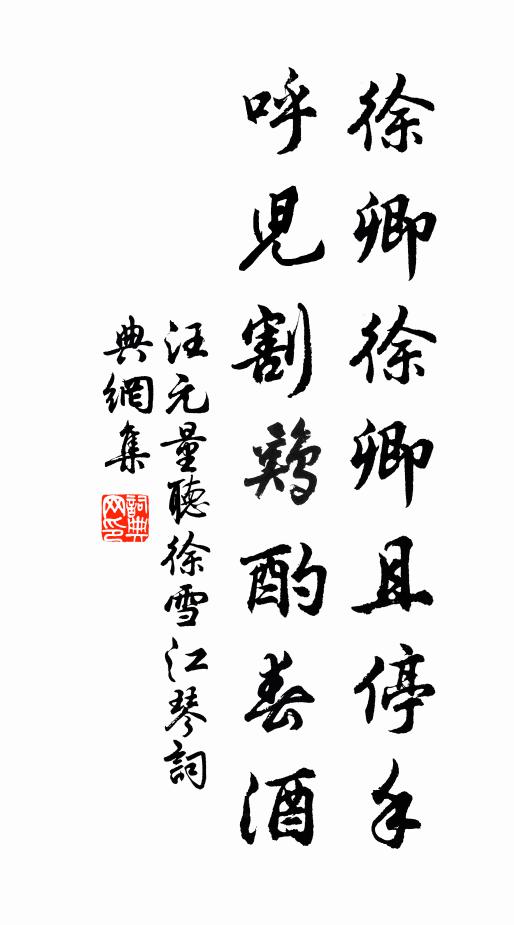 徐卿徐卿且停手
呼児割鷄酌春酒
汪元量聽徐雪江琴詞
典網集
詞典網印